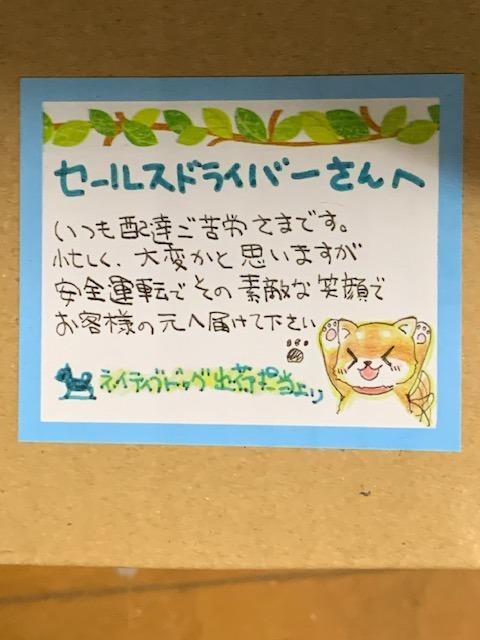 セールスドライバーさんへ
いつも配達ご苦労さまです。
忙しく、大変かと思いますが
安全運転でその素敵な笑顔で
お客様の元へ届けて下さい
ネイティブドッグ出荷担当より